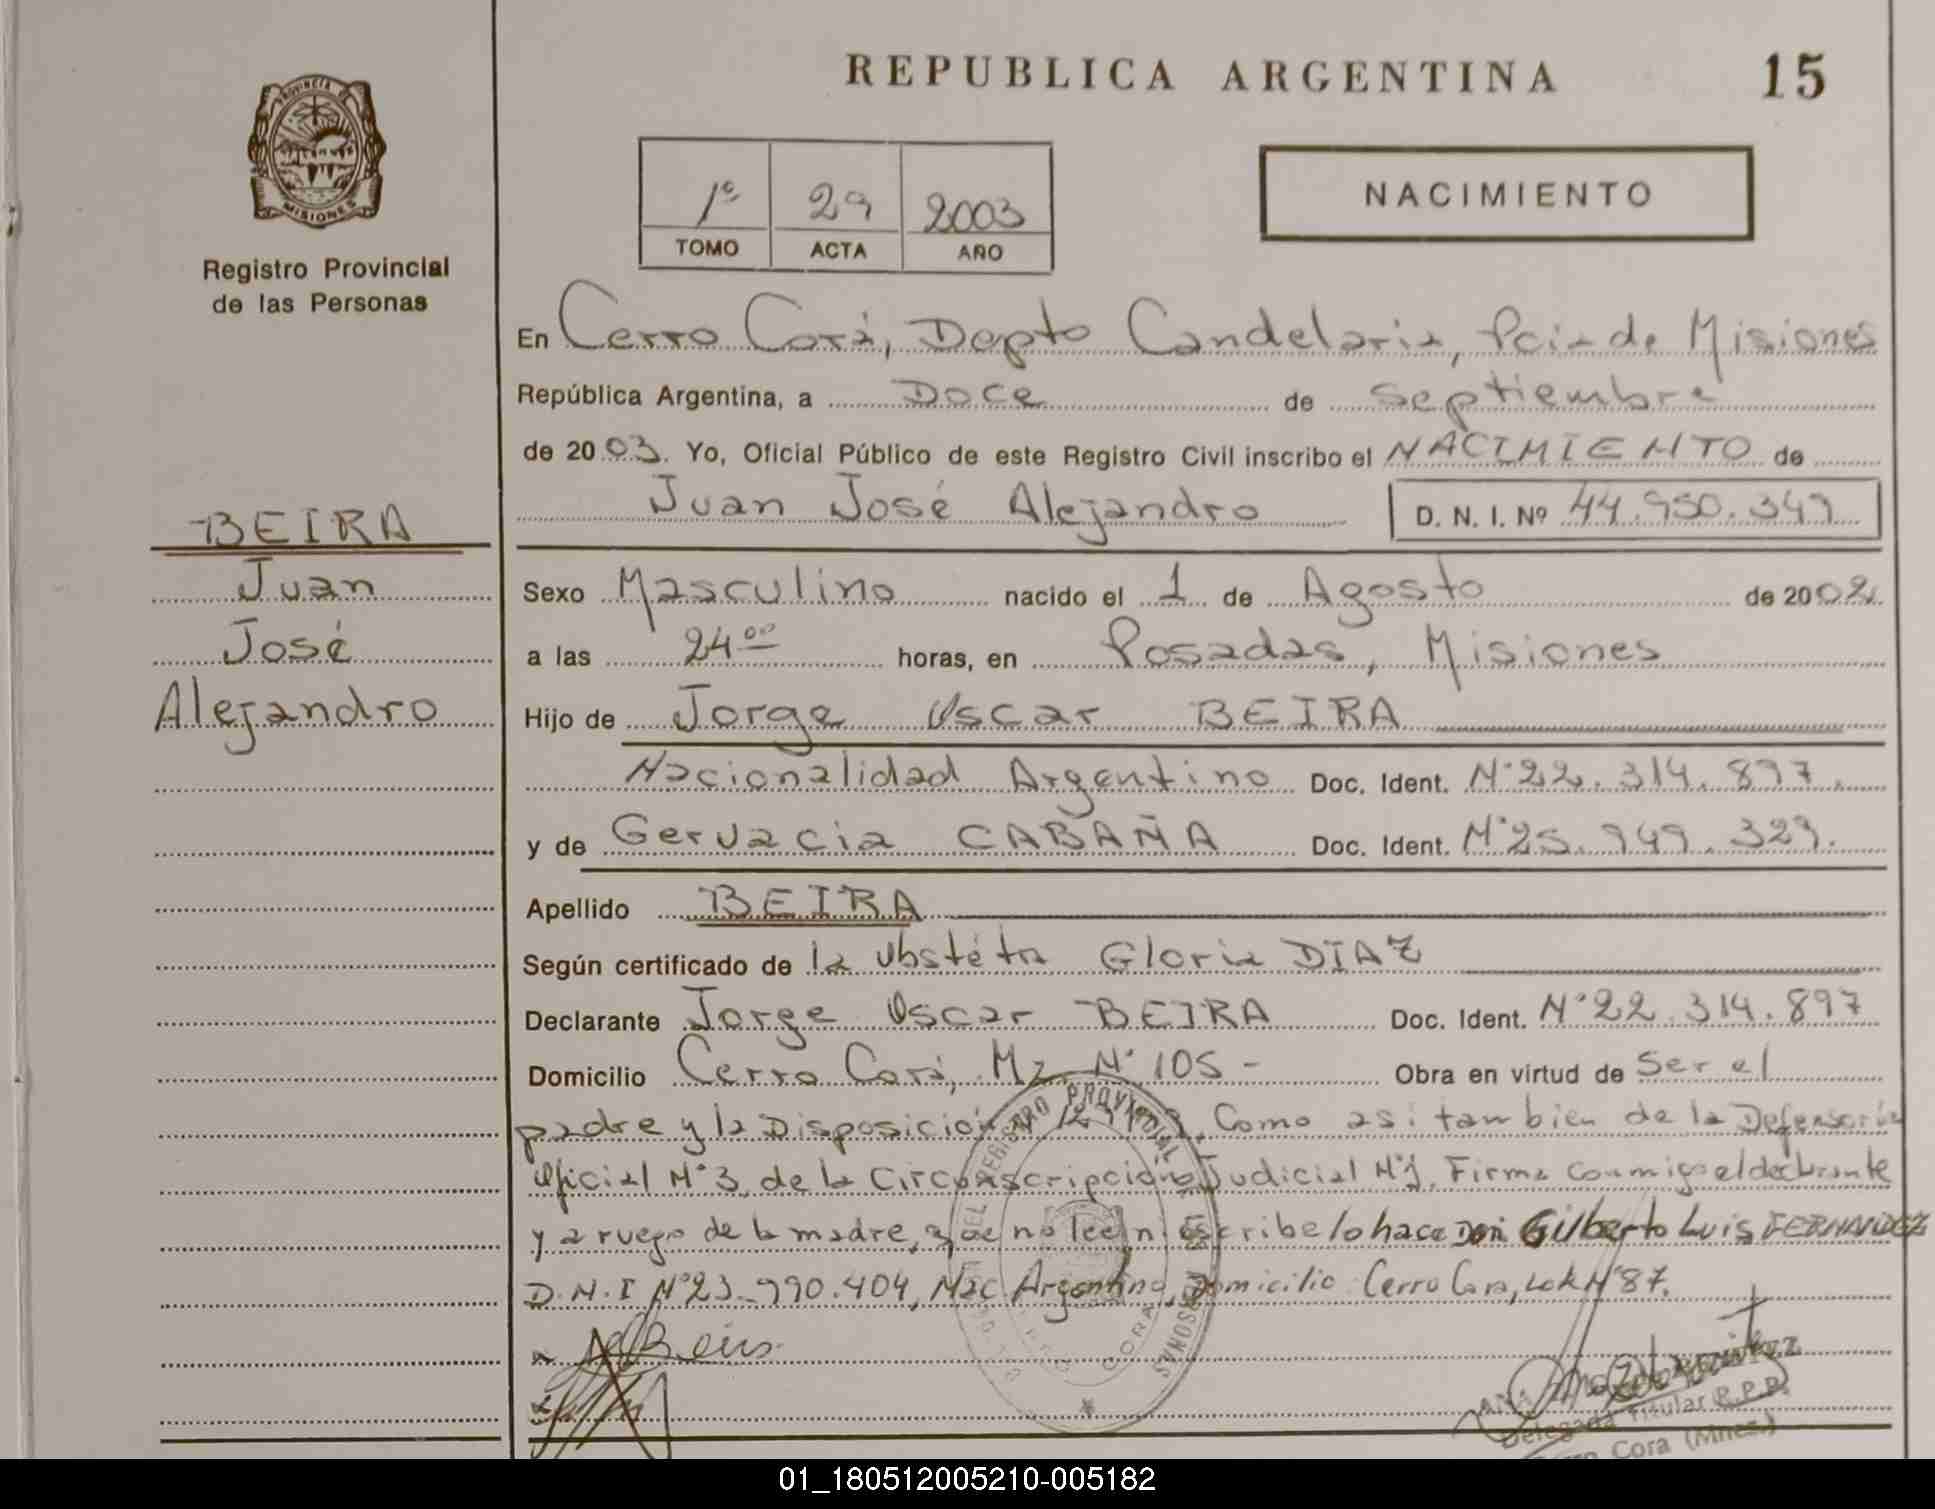 REPUBLICA ARGENTINA
15
PROVINCIA DE
MISIONES
Registro Provincial
de las Personas
1º 29 2003
TOMO ACTA AÑO
NACIMIENTO
En Cerro Corá, Depto Candelaria, Pcia de Misiones
República Argentina, a Doce de septiembre
de 2003. Yo, Oficial Público de este Registro Civil inscribo el NACIMIENTO de
Juan José Alejandro D. N. I. Nº 44.950.349
BEIRA
Juan
José
Alejandro
Sexo Masculino nacido el 1 de Agosto de 2002
a las 24ºº horas, en Posadas, Misiones
Hijo de Jorge Oscar BEIRA
Nacionalidad Argentino Doc. Ident. Nº 22.314.897.
y de Gervacia CABAÑA Doc. Ident. Nº 25.949.329.
Apellido BEIRA
Según certificado de la Obstétra Gloria DIAZ
Declarante Jorge Oscar BEIRA Doc. Ident. Nº 22.314.897
Domicilio Cerro Corá, Mz Nº 105 - Obra en virtud de Ser el
padre y la Disposición Como asi tambien de la Defensoría
Oficial Nº 3, de la Circunscripción Judicial Nº 1. Firma conmigo el declarante
y a ruego de la madre, que no lee ni escribe lo hace Don Gilberto Luis FERNANDEZ
D.N.I Nº 23.990.404, Nac Argentino, Domicilio: Cerro Cora, Lok Nº 87.
DEL REGISTRO PROVINCIAL DE LAS PERSONAS
CERRO CORA
Delegada Titular R.P.P.
Cerro Cora (Mnes.)
01_180512005210-005182